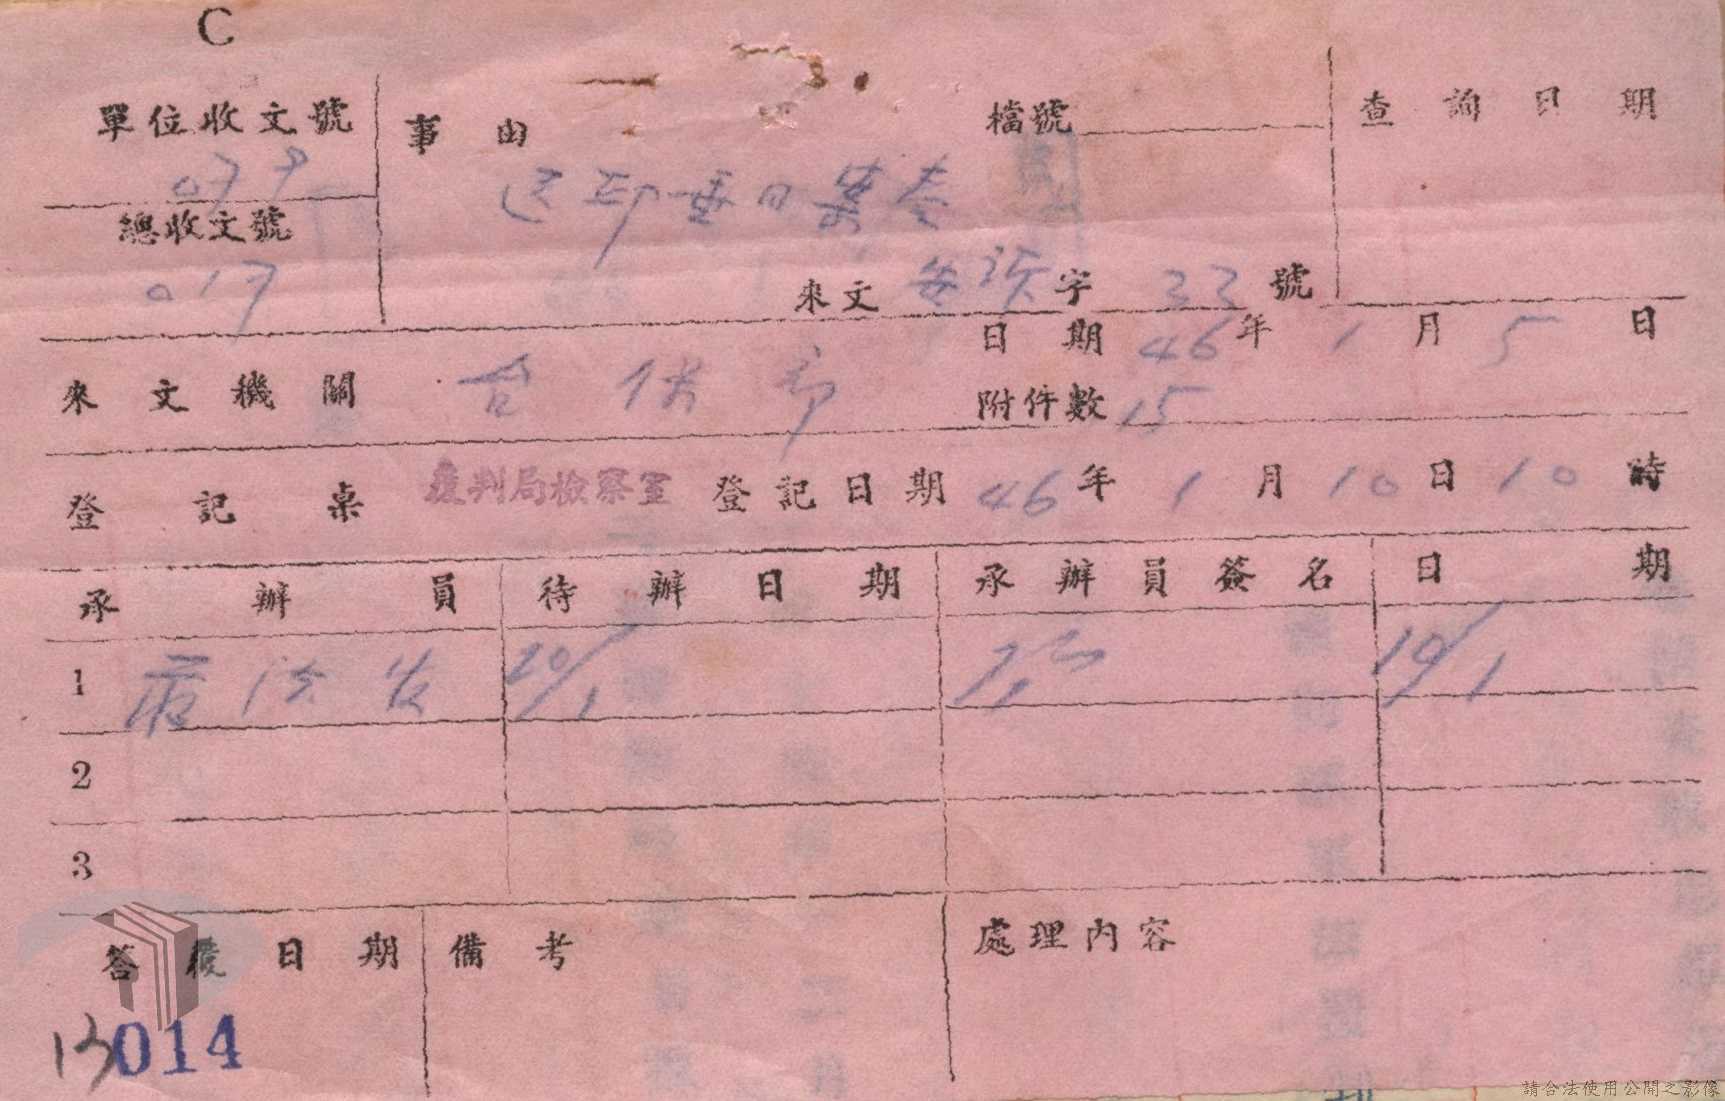 C
單位收文號
077
總收文號
017
事由 送邱垂日案卷
檔號
來文 字 33 號
查詢日期
來文機關 台保部
日期 46年1月5日
附件數 15
登記桌 覆判局檢察室 登記日期 46年1月10日10時
承辦員 待辦日期 承辦員簽名 日期
1 10/1 10/1
2
3
答覆日期 備考 處理內容
13014
請合法使用公開之影像